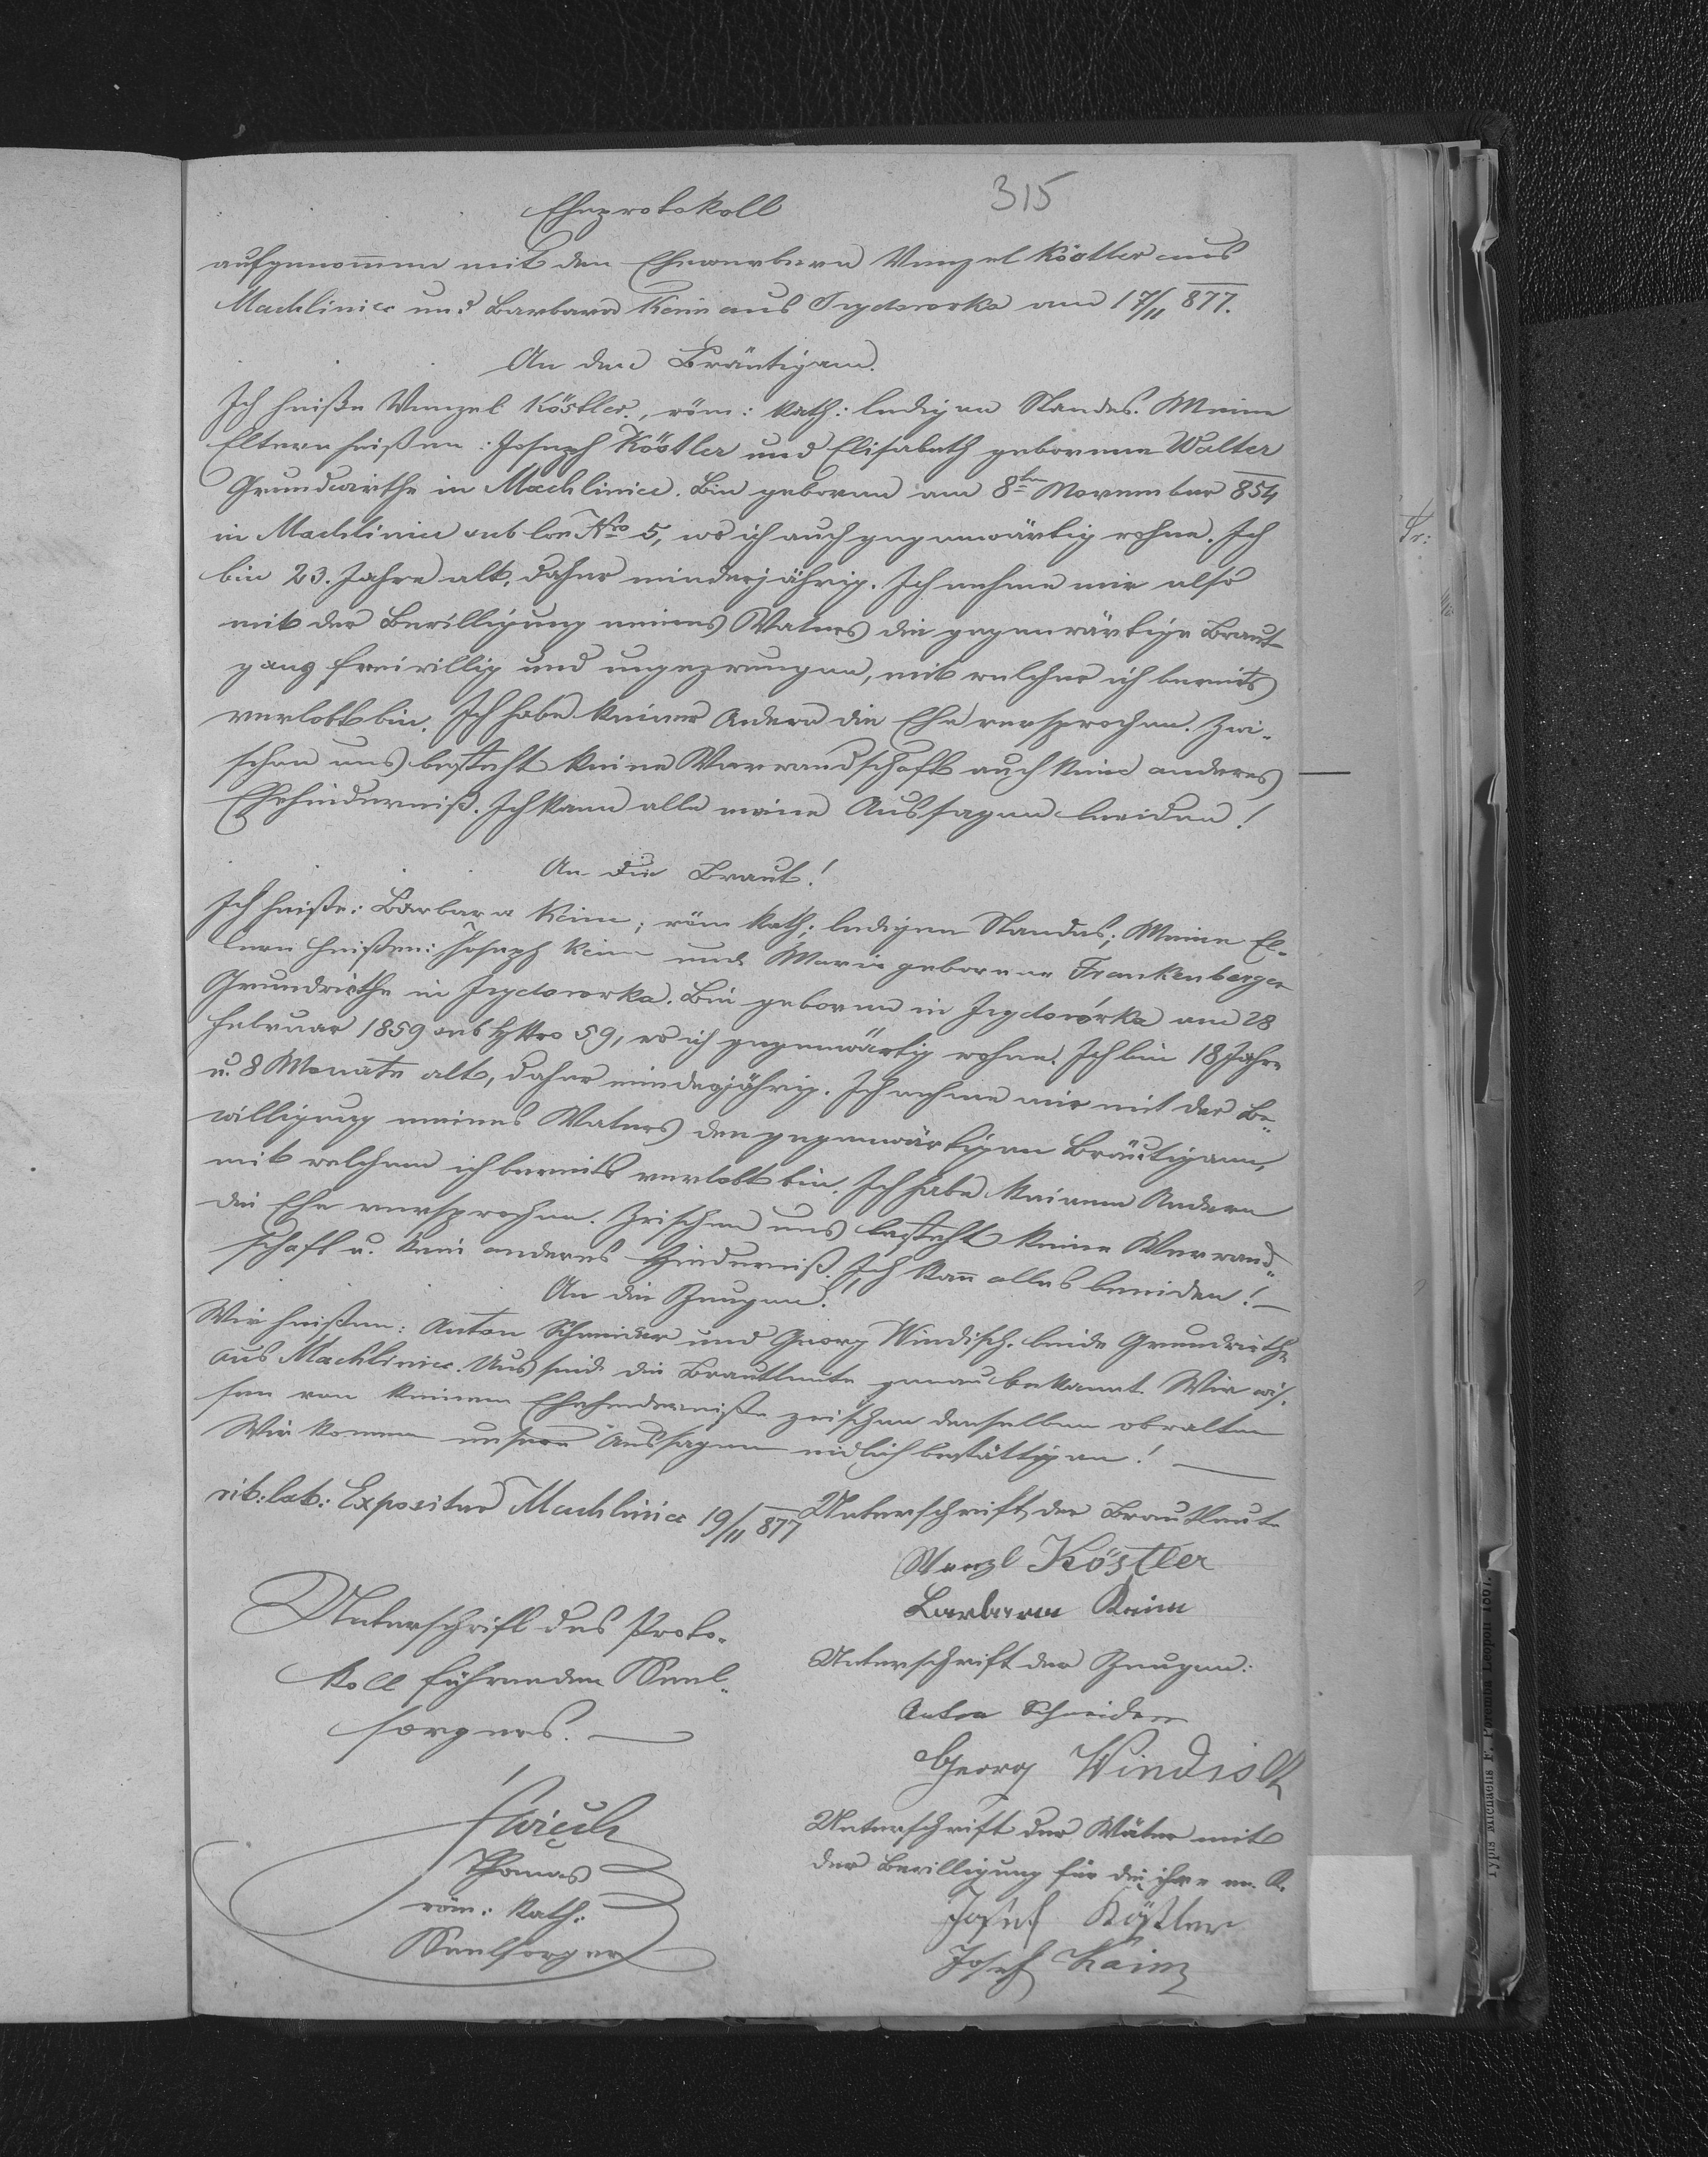 315
Eheprotokoll
aufgenommen mit den Ehewerbern Wenzel Köstler aus
Machlinice und Barbara Keim aus Izydorovka am 17/11 877.
An den Bräutigam.
Ich heiße Wenzel Köstler, röm: kath: ledigen Standes. Meine
Eltern heißen: Joseph Köstler und Elisabeth geborene Walter
Grundwirthe in Machlinice. Bin geboren am 8ten November 854
in Machlinice sub Nro 5, wo ich auch gegenwärtig wohne. Ich
bin 23. Jahre alt, daher minderjährig. Ich nehme mir also
mit der Bewilligung meines Vaters die gegenwärtige Braut
ganz freiwillig und ungezwungen, mit welcher ich bereits
verlobt bin. Ich habe keiner Andern die Ehe versprochen. Zwi-
schen uns besteht keine Verwandschaft auch kein anderes
Ehehinderniß. Ich kann alle meine Aussagen beeiden!
An die Braut!
Ich heiße: Barbara Keim; röm kath; ledigen Standes; Meine El-
tern heißen: Joseph Keim und Marie geborene Frankenberger
Grundwirthe in Izydorovka. Bin geboren in Izydorówka am 28
Februar 1859 sub Nro 59, wo ich gegenwärtig wohne. Ich bin 18 Jahre
u. 8 Monate alt, daher minderjährig. Ich nehme mir mit der Be-
willigung meines Vaters den gegenwärtigen Bräutigam,
mit welchem ich bereits verlobt bin. Ich habe keinem Andern
die Ehe versprochen. Zwischen uns besteht keine Verwand-
schaft u. kein anderes Hinderniß. Ich kann alles beeiden! —
An die Zeugen!
Wir heißen: Anton Schneider und Georg Windisch. beide Grundwirthe
aus Machlinice. Uns sind die Brautleute genau bekannt. Wir wis-
sen von keinem Ehehinderniße zwischen denselben obwalten
Wir können unsere Aussagen eidlich bestättigen! —
rit: lat: Expositur Machlinice 19/11 877
Unterschrift der Brautleute
Wenzl Köstler
Barbara Keim
Unterschrift des Proto-
koll führenden Seel-
sorgers. —
Unterschrift der Zeugen:
Anton Schneider
Georg Windisch
Thomas
röm: kath:
Seelsorger
Unterschrift der Väter mit
der Bewilligung für die ihre m. K.
Josef Köstler
Josef Kaim
Typis Michaelis F. Poremba Leopoli 1867.